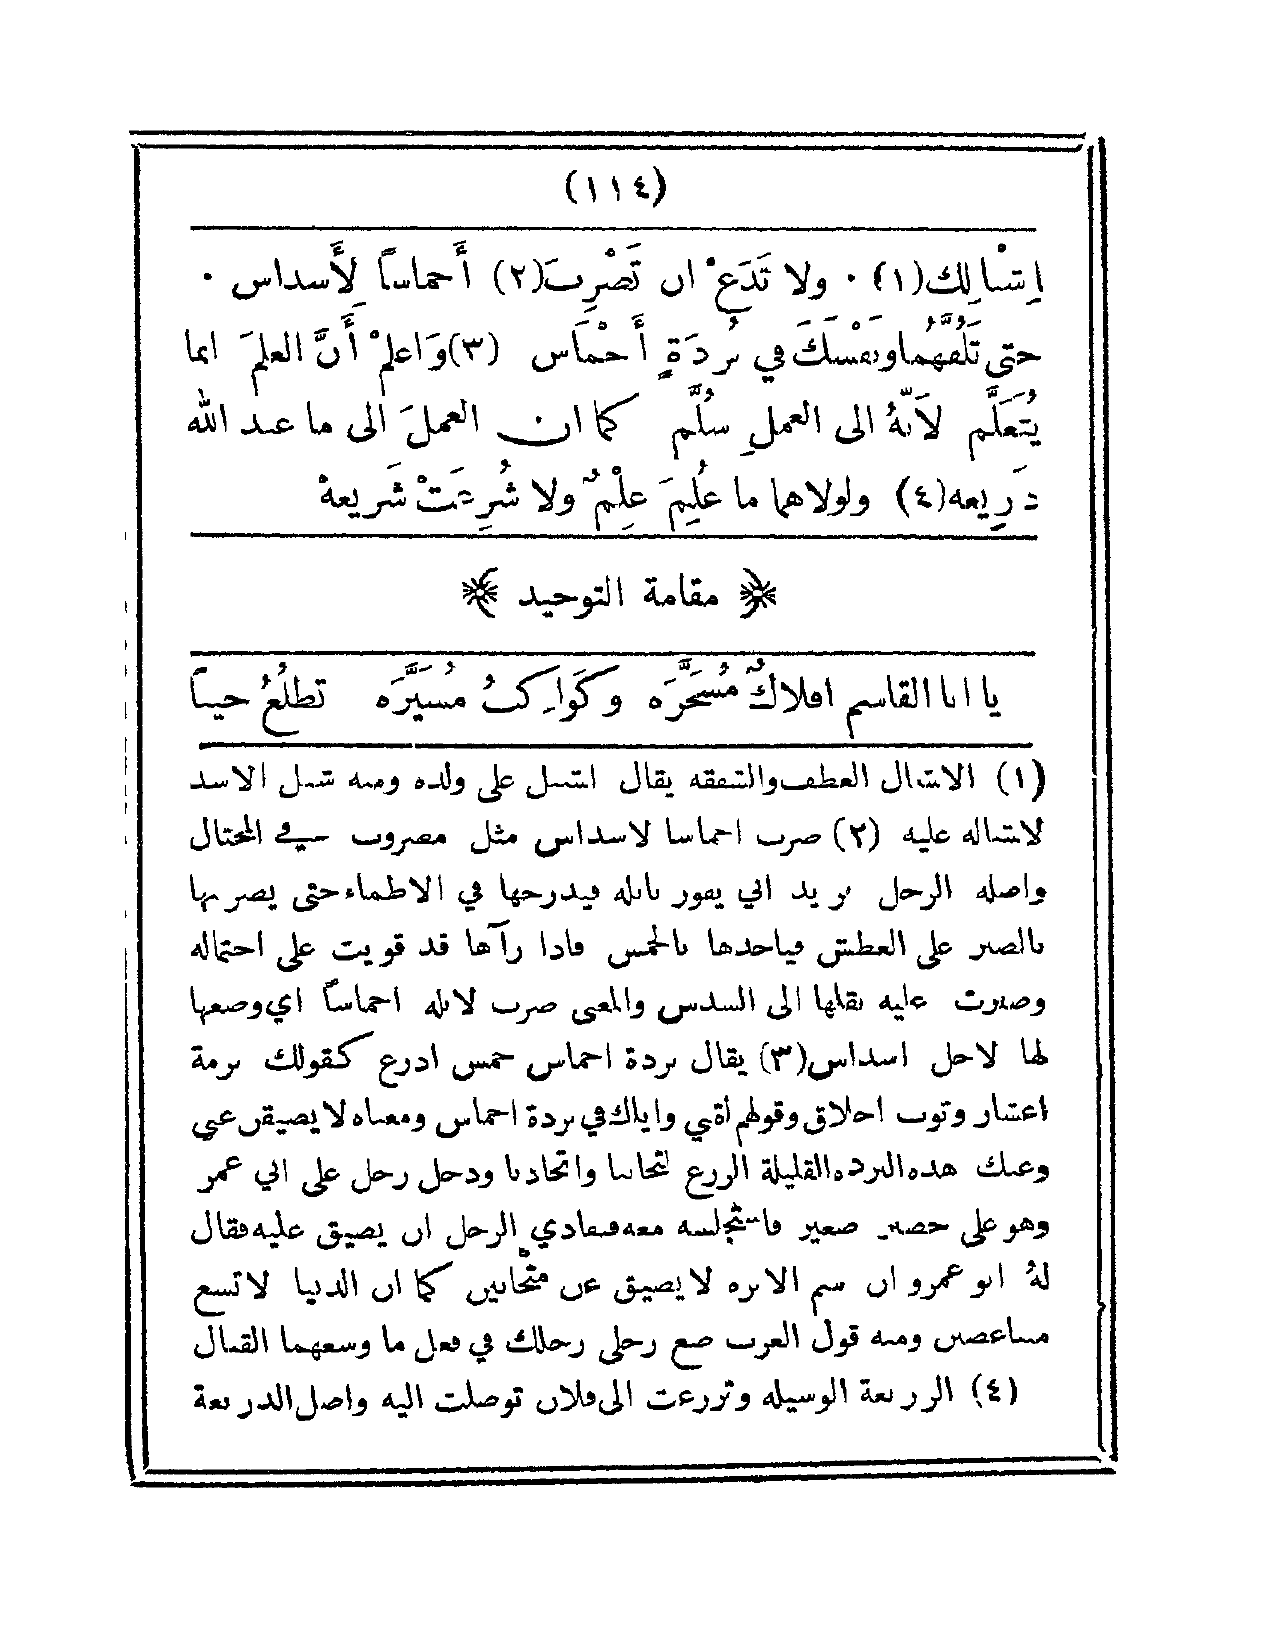 (١١٤)
إِشْبَالِك(١) · ولا تَدَعْ ان تَضْرِبَ(٢) أَخماساً لِأَسداس ·
حتى تَلُفَّهُما ونَفْسَكَ في بُردَةٍ أَخْمَاس (٣) وَاعلمْ أَنَّ العلمَ انما
يُتَعَلَّم لأَنهُ الى العملِ سُلَّم كما ان العملَ الى ما عند الله
ذَرِيعه(٤) ولولاهما ما عُلِمَ عِلْمٌ ولا شُرِعَتْ شَريعهْ
﴿ مقامة التوحيد ﴾
يا ابا القاسم افلاكٌ مُسَخَّرَه وكَواكبُ مُسَيَّرَه تطلُعُ حيناً
(١) الاشبال العطف والشفقه يقال اشبل على ولده ومنه شبل الاسد
لاشباله عليه (٢) ضرب اخماسا لاسداس مثل مضروب في المحتال
واصله الرجل يريد ان يفوز بابله فيدرجها في الاظماء حتى يضر بها
بالصبر على العطش فياخذها بالخمس فاذا رآها قد قويت على احتماله
وصبرت عليه نقلها الى السدس والمعنى ضرب لابله اخماساً اي وضعها
لها لاجل اسداس(٣) يقال بردة اخماس خمس اذرع كقولك برمة
اعشار وثوب اخلاق وقولهم أني واياك في بردة اخماس ومعناه لا يضيق عني
وعنك هذه البرده القليلة الذرع لتحابنا واتحادنا ودخل رجل على ابي عمر
وهو على حصير صغير فاستجلسه معه فتفادي الرجل ان يضيق عليه فقال
لهُ ابو عمرو ان سم الابره لا يضيق عن متحابين كما ان الدنيا لا تسع
متباغضين ومنه قول العرب ضع رحلي رحلك في فعل ما وسعهما القبال
(٤) الذريعة الوسيله وتزرعت الى فلان توصلت اليه واصل الذريعة